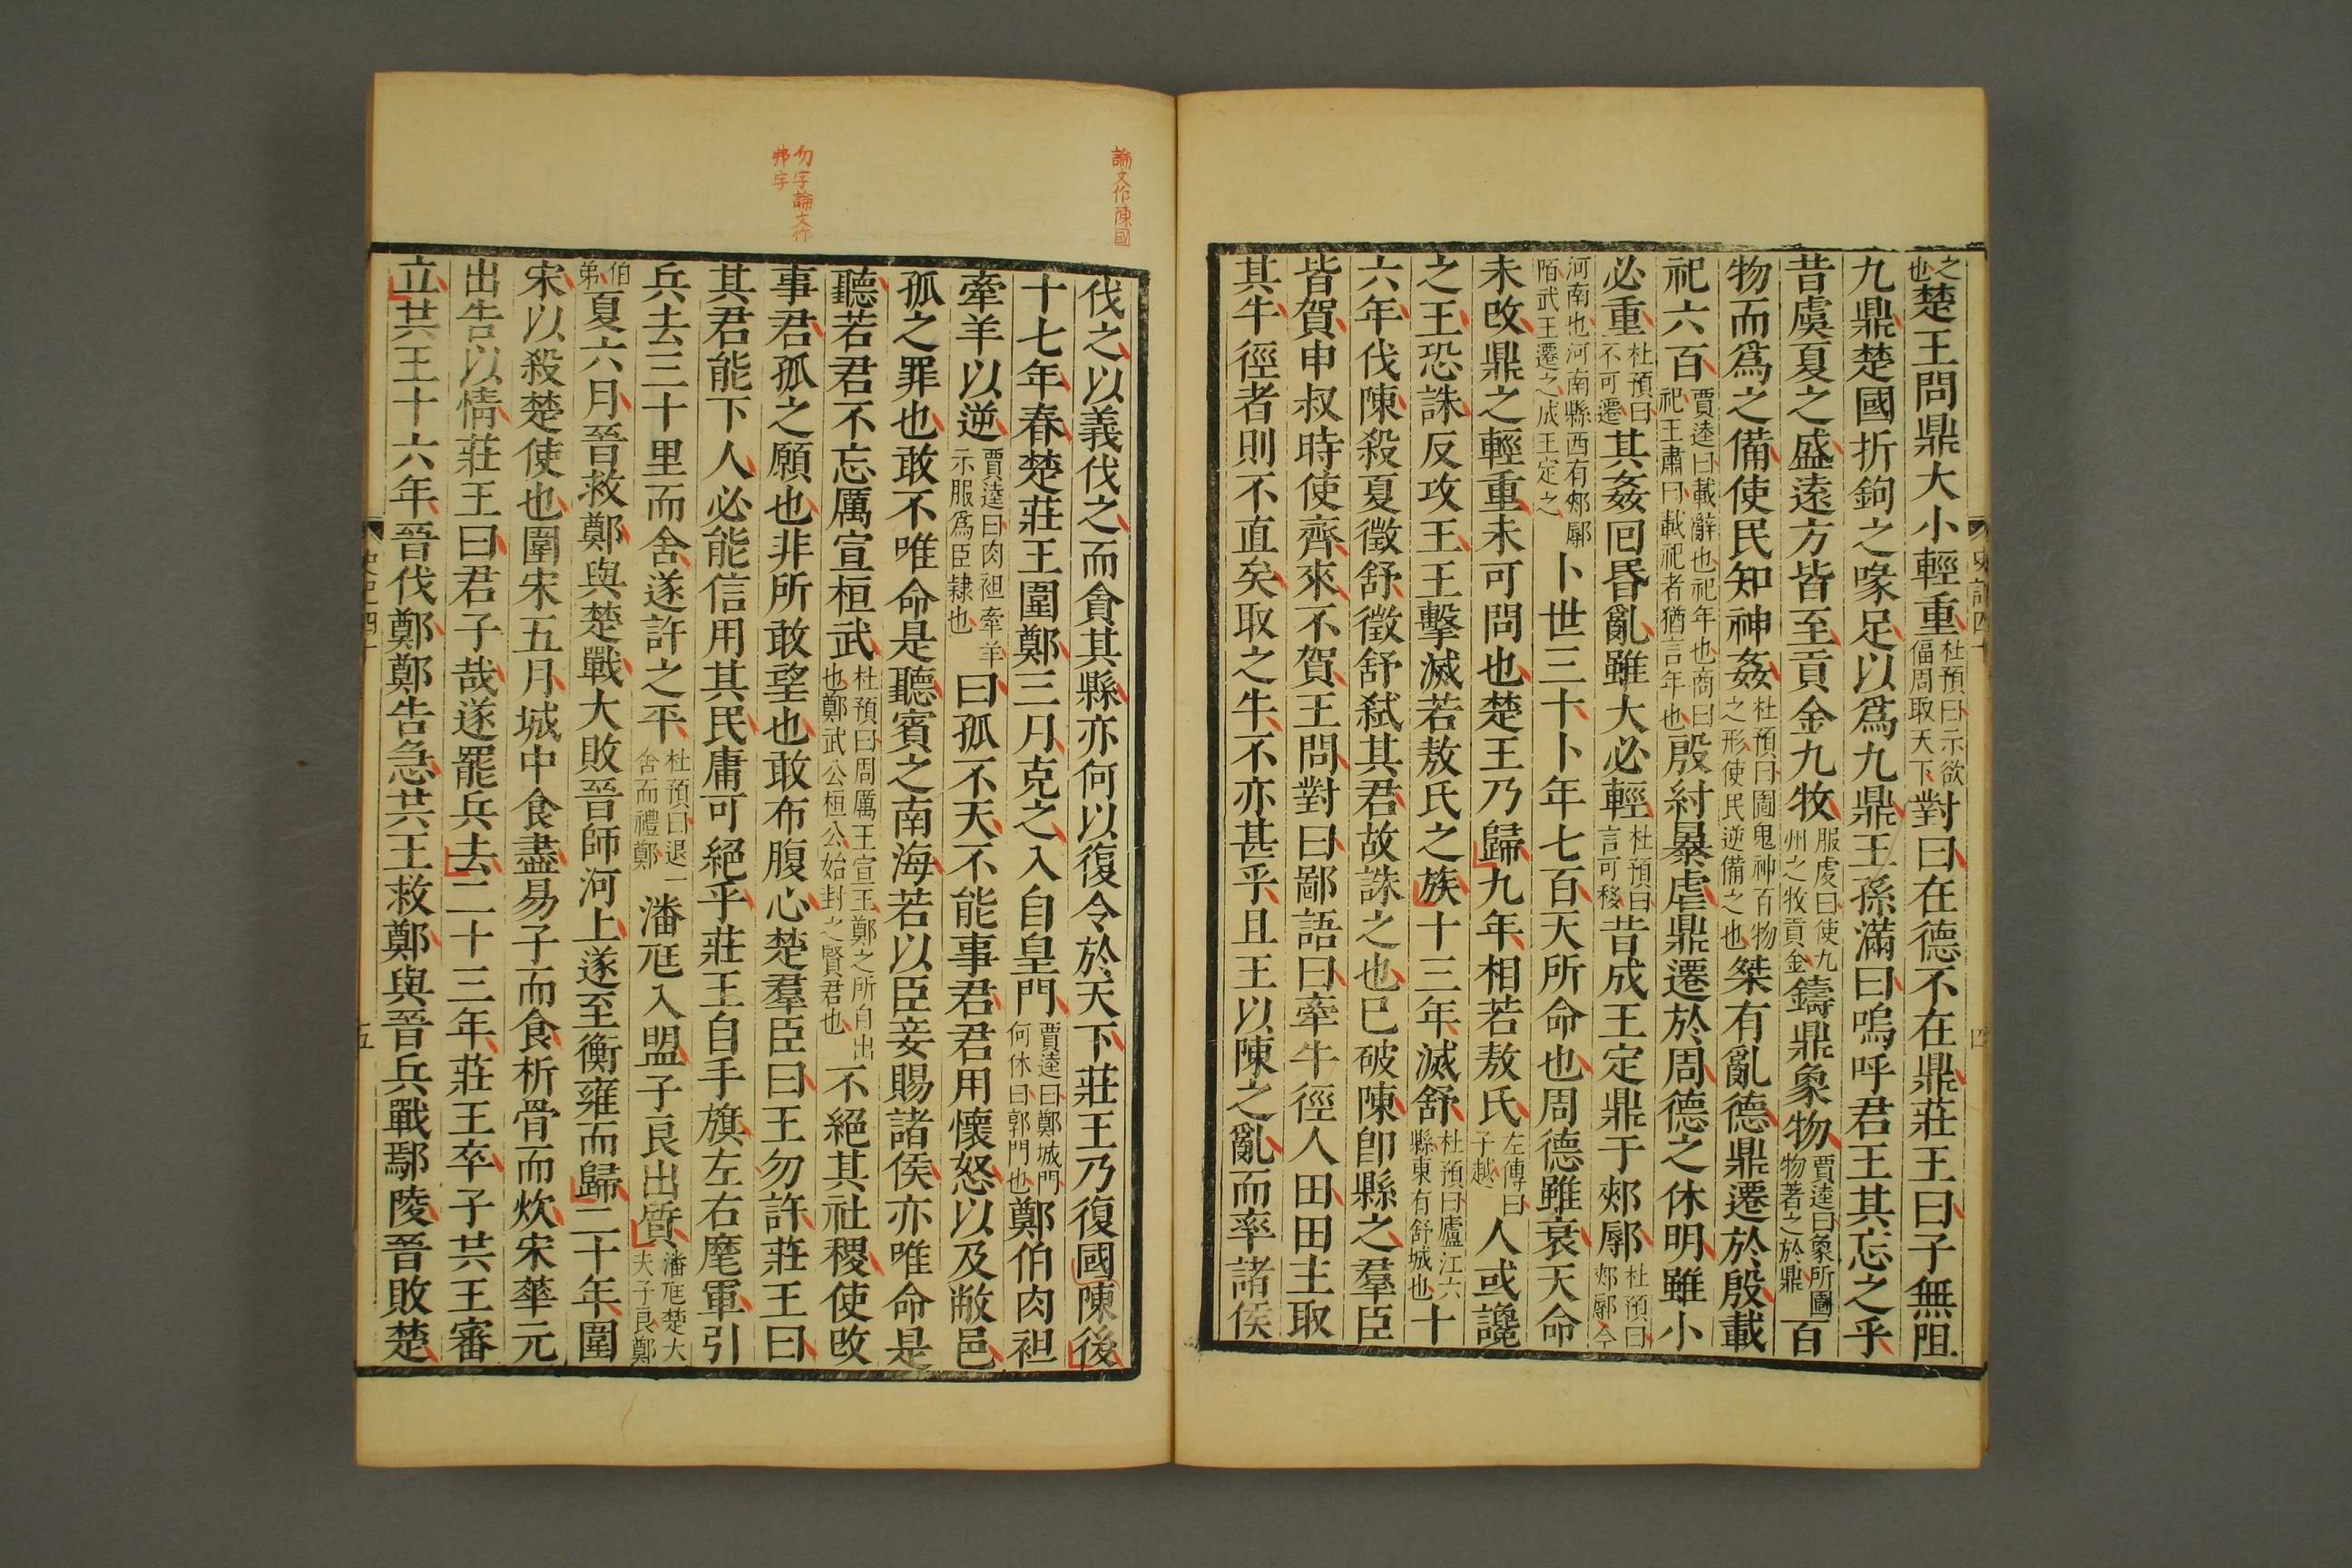 之也楚王問鼎大小輕重杜預曰示欲偪周取天下對曰在德不在鼎莊王曰子無阻
九鼎楚國折鉤之喙足以爲九鼎王孫滿曰嗚呼君王其忘之乎
昔虞夏之盛遠方皆至貢金九牧服虔曰使九州之牧貢金鑄鼎象物賈逵曰象所圖物著之於鼎百
物而爲之備使民知神姦杜預曰圖鬼神百物之形使民逆備之也桀有亂德鼎遷於殷載
祀六百賈逵曰載辭也祀年也商曰祀王肅曰載祀者猶言年也殷紂暴虐鼎遷於周德之休明雖小
必重杜預曰不可遷其姦回昏亂雖大必輕杜預曰言可移昔成王定鼎于郟鄏杜預曰郟鄏今
河南也河南縣西有郟鄏陌武王遷之成王定之卜世三十卜年七百天所命也周德雖衰天命
未改鼎之輕重未可問也楚王乃歸九年相若敖氏左傳曰子越人或讒
之王恐誅反攻王王擊滅若敖氏之族十三年滅舒杜預曰廬江六縣東有舒城也十
六年伐陳殺夏徵舒徵舒弒其君故誅之也已破陳卽縣之羣臣
皆賀申叔時使齊來不賀王問對曰鄙語曰牽牛徑人田田主取
其牛徑者則不直矣取之牛不亦甚乎且王以陳之亂而率諸侯
伐之以義伐之而貪其縣亦何以復令於天下莊王乃復國陳後
十七年春楚莊王圍鄭三月克之入自皇門賈逵曰鄭城門何休曰郭門也鄭伯肉袒
牽羊以逆賈逵曰肉袒牽羊示服爲臣隸也曰孤不天不能事君君用懷怒以及敝邑
孤之罪也敢不唯命是聽賓之南海若以臣妾賜諸侯亦唯命是
聽若君不忘厲宣桓武杜預曰周厲王宣王鄭之所自出也鄭武公桓公始封之賢君也不絕其社稷使改
事君孤之願也非所敢望也敢布腹心楚羣臣曰王勿許莊王曰
其君能下人必能信用其民庸可絕乎莊王自手旗左右麾軍引
兵去三十里而舍遂許之平杜預曰退一舍而禮鄭潘尫入盟子良出質潘尫楚大夫子良鄭
伯弟夏六月晉救鄭與楚戰大敗晉師河上遂至衡雍而歸二十年圍
宋以殺楚使也圍宋五月城中食盡易子而食析骨而炊宋華元
出告以情莊王曰君子哉遂罷兵去二十三年莊王卒子共王審
立共王十六年晉伐鄭鄭告急共王救鄭與晉兵戰鄢陵晉敗楚
論文作陳國
勿字論文作
弗字
史記四十
四
五